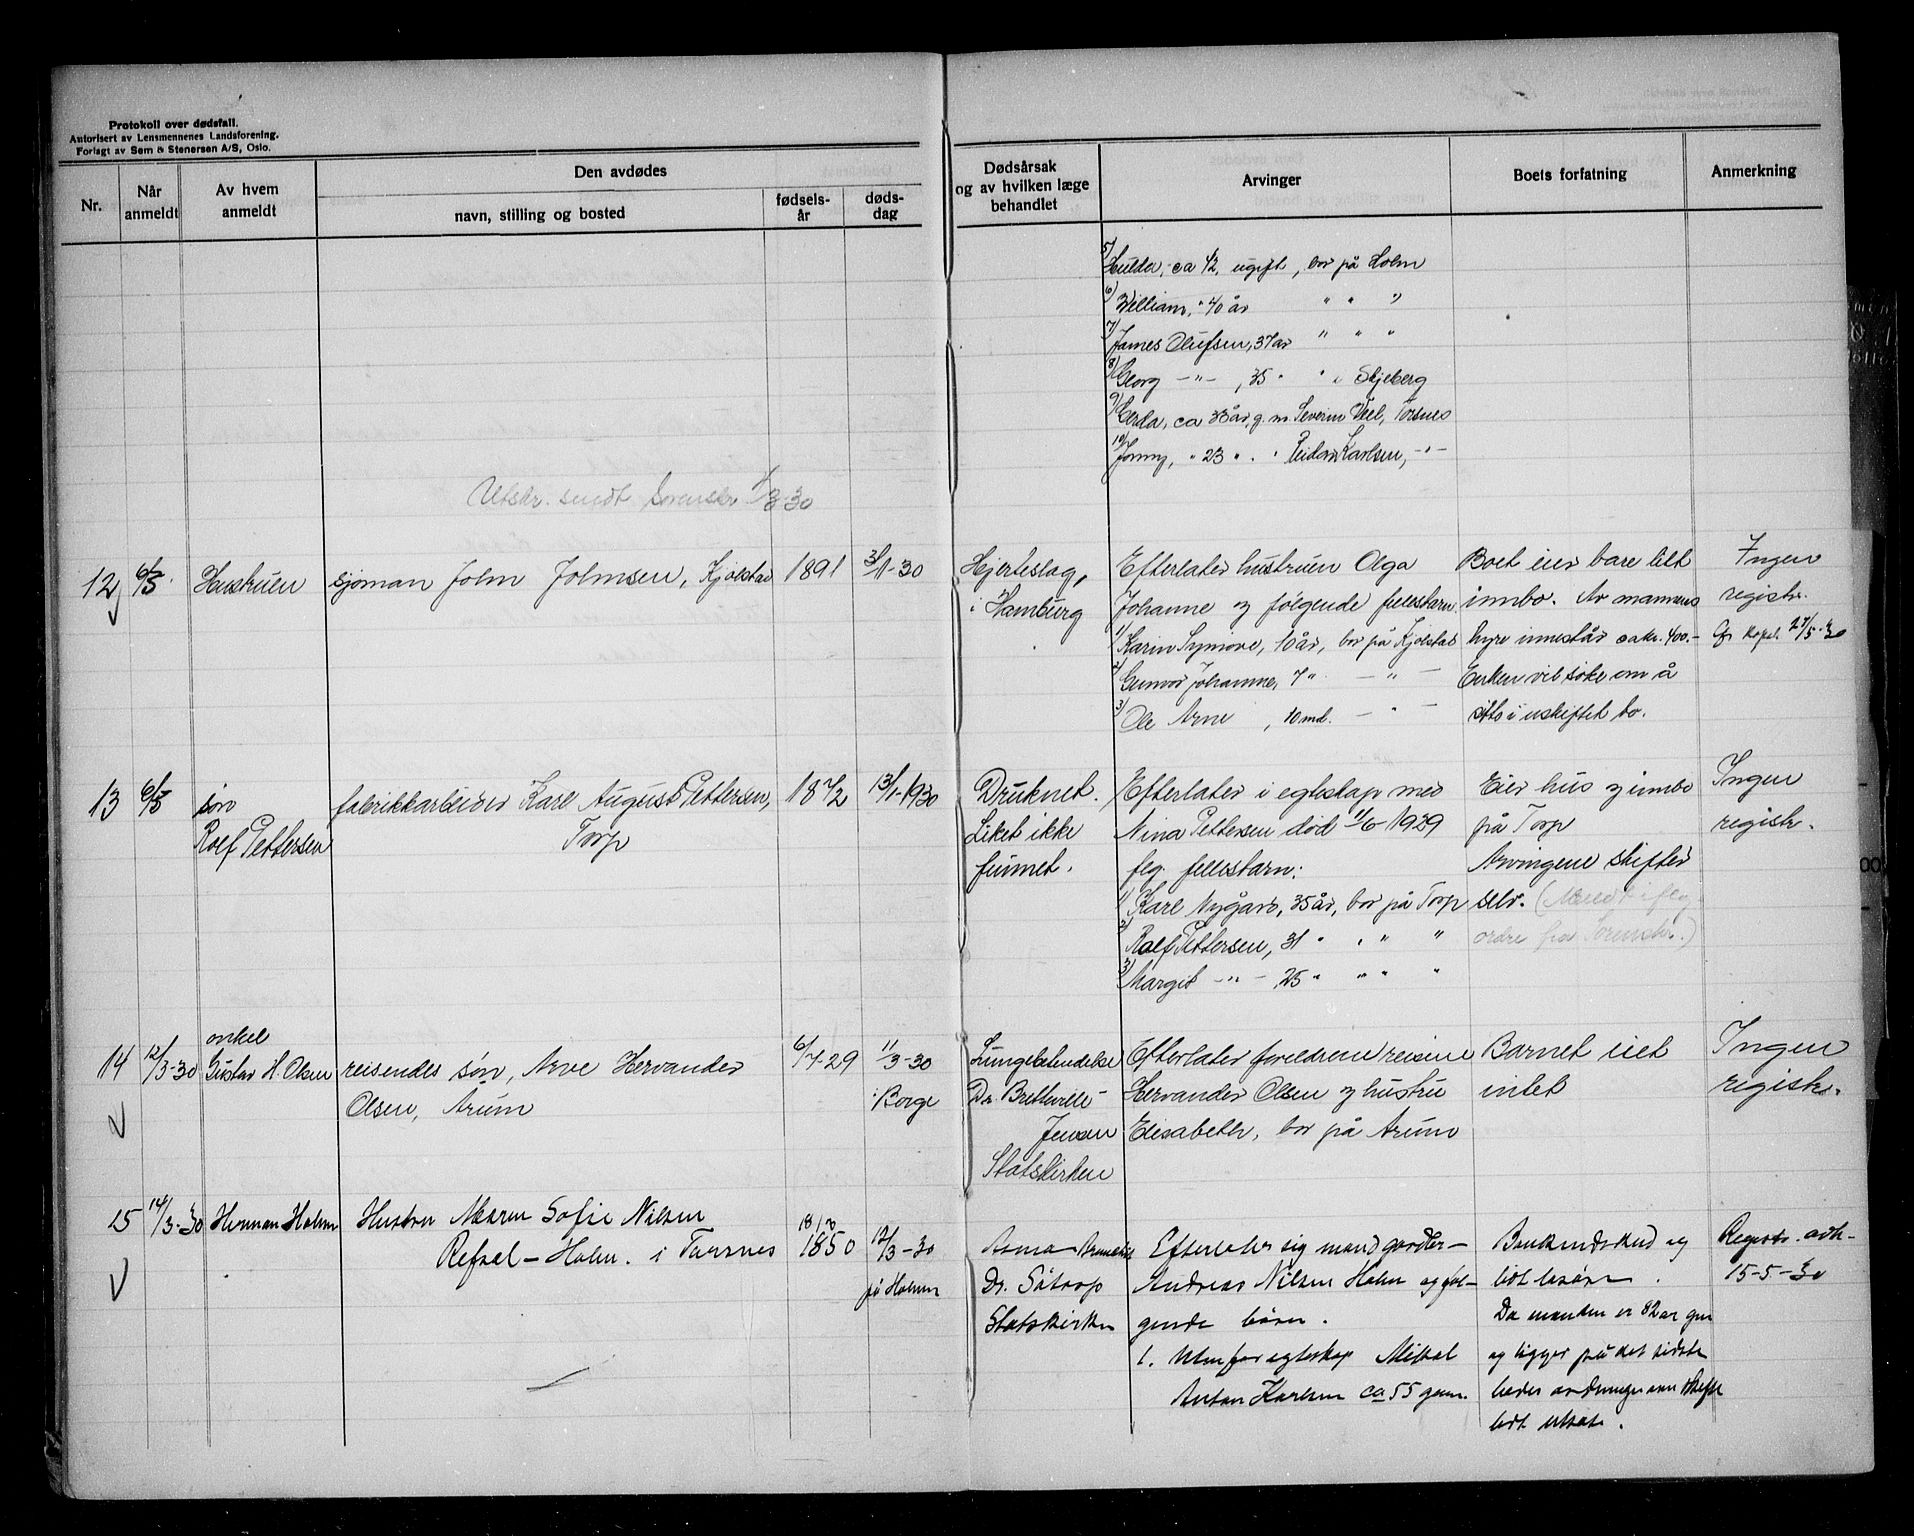 Protokoll over dødsfall.
Autorisert av Lensmennenes Landsforening.
Forlagt av Sem & Stenersen A/S, Oslo.
Nr.
Når
anmeldt
Av hvem
anmeldt
Den avdødes
navn, stilling og bosted
fødsels-
år
døds-
dag
Dødsårsak
og av hvilken læge
behandlet
Arvinger
Boets forfatning
Anmerkning
5) Hulda, ca 42, ugift, bor på Holm
6) William, " 40 år " " "
7) James Olufsen, 37 år " " "
8) Georg -"- , 35 " " i Skjeberg
9) Gerda, ca 38 år, g. m. Severin Veel, Torsnes
10) Jenny, " 23 " " " Karlsen, -"-
Utskr. sendt Sorenskr. 1/3-30
12
6/3.
Hustruen
sjøman John Johnsen, Kjølstad
1891
3/1-30
Hjerteslag,
i Hamburg
Efterlater hustruen Olga
Johanne og følgende fellesbarn
1) Karin Synnøve, 10 år, bor på Kjølstad
2) Gunvor Johanne, 7 " — " —
3) Ole Arne , 10 md. — " —
Boet eier bare litt
innbo. Av mannens
hyre innestår ca kr. 400.-
Enken vil søke om å
sitte i uskiftet bo.
Ingen
registr.
27/5-30
13
6/3
søn
Rolf Pettersen
fabrikkarbeider Karl August Pettersen,
Torp
1872
13/1-1930
Druknet.
Liket ikke
funnet.
Efterlater i egteskap med
Nina Pettersen død 11/6-1929
flg. fellesbarn:
1) Karl Nygård, 35 år, bor på Torp
2) Rolf Pettersen, 31 " " " "
3) Margit -"- , 25 " " " "
Eier hus og innbo
på Torp
Arvingene skifter
selv. (Meldt i flg.
ordre fra Sorenskr.)
Ingen
registr.
14
12/3-30
onkel
Gustav H. Olsen
reisendes søn, Arve Hervander
Olsen, Årum
6/7-29
11/3-30
i Borge
Lungebetendelse
Dr. Bretteville-
Jensen
Statskirken
Efterlater foreldrene reisende
Hervander Olsen og hustru
Elisabeth, bor på Årum
Barnet eiet
intet
Ingen
registr.
15
14/3-30
Herman Holm
Hustru Maren Sofie Nilsen
Refsal - Holm. i Torsnes
1850
12/3-30
på Holm
Dr. Sátrop
Statskirken
Efterlater sig mand gardbr-
Andreas Nilsen Holm og føl-
gende börn.
1. Utenfor egteskap Mikal
Anton Karlsen ca 55 gam.
og
lidt løsøre.
Da manden er 82 år gm
og ligger på det sidste
skifte
lidt utsat.
Registr. adh-
15-5-30